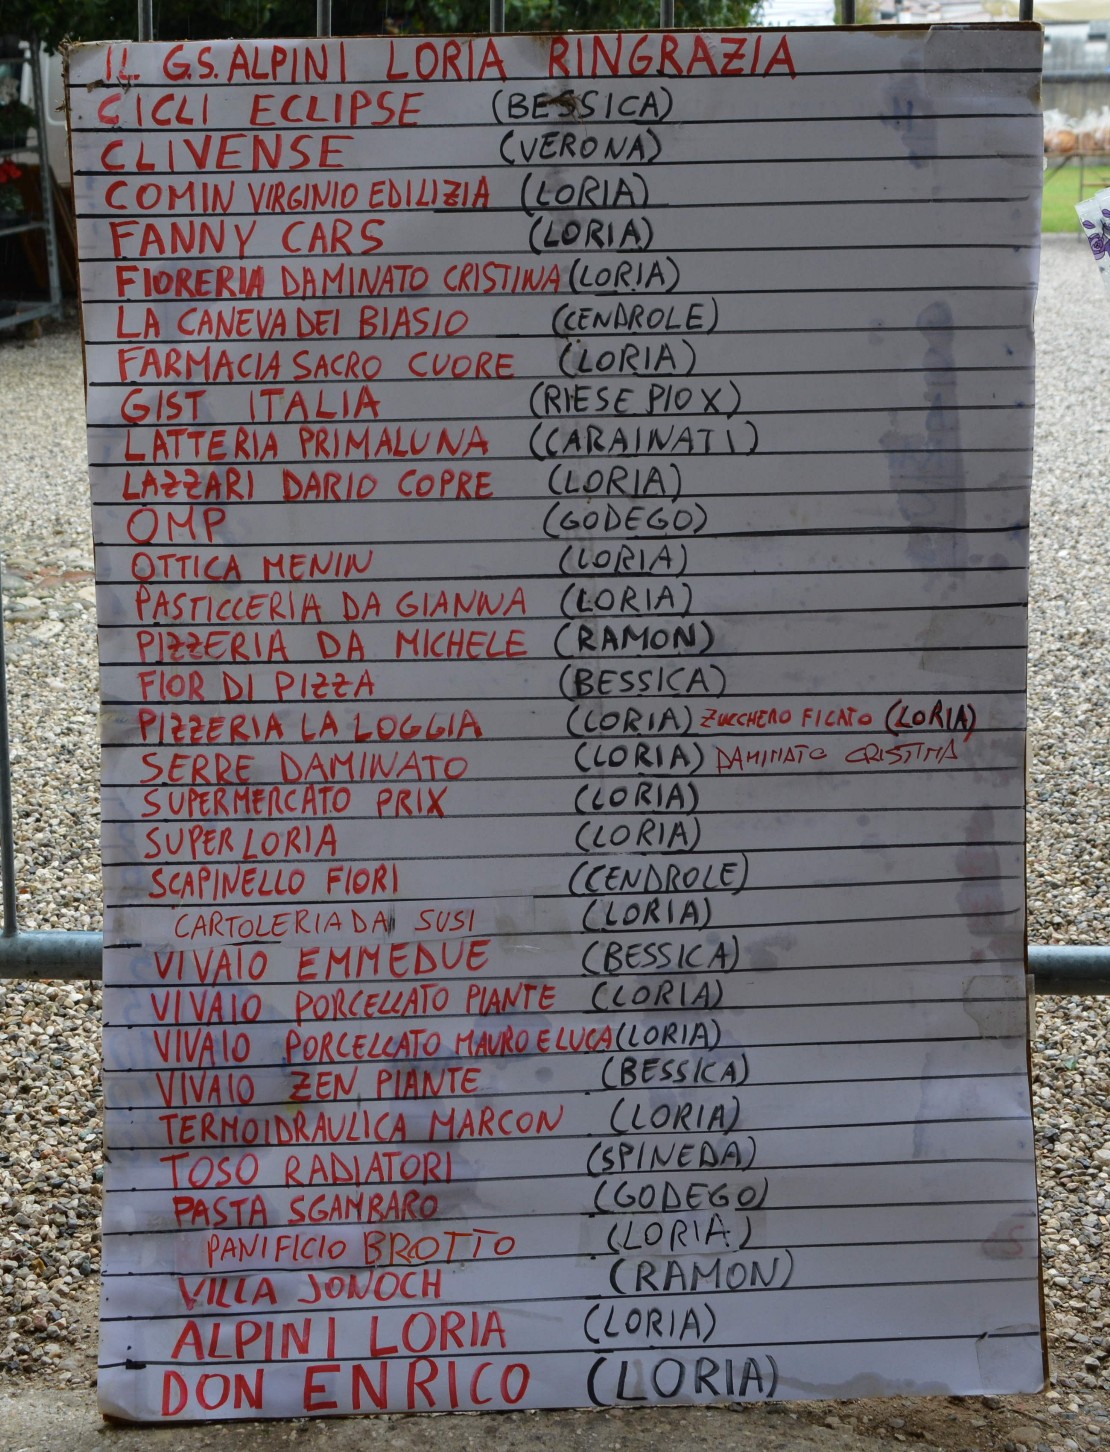 IL G.S. ALPINI LORIA RINGRAZIA
CICLI ECLIPSE (BESSICA)
CLIVENSE (VERONA)
COMIN VIRGINIO EDILIZIA (LORIA)
FANNY CARS (LORIA)
FIORERIA DAMINATO CRISTINA (LORIA)
LA CANEVA DEI BIASIO (CENDROLE)
FARMACIA SACRO CUORE (LORIA)
GIST ITALIA (RIESE PIO X)
LATTERIA PRIMALUNA (CARAINATI)
LAZZARI DARIO COPRE (LORIA)
OMP (GODEGO)
OTTICA MENIN (LORIA)
PASTICCERIA DA GIANNA (LORIA)
PIZZERIA DA MICHELE (RAMON)
FIOR DI PIZZA (BESSICA)
PIZZERIA LA LOGGIA (LORIA) ZUCCHERO FILATO (LORIA)
SERRE DAMINATO (LORIA) DAMINATO CRISTINA
SUPERMERCATO PRIX (LORIA)
SUPER LORIA (LORIA)
SCAPINELLO FIORI (CENDROLE)
CARTOLERIA DA SUSI (LORIA)
VIVAIO EMMEDUE (BESSICA)
VIVAIO PORCELLATO PIANTE (LORIA)
VIVAIO PORCELLATO MAURO E LUCA (LORIA)
VIVAIO ZEN PIANTE (BESSICA)
TERMOIDRAULICA MARCON (LORIA)
TOSO RADIATORI (SPINEDA)
PASTA SGAMBARO (GODEGO)
PANIFICIO BROTTO (LORIA)
VILLA JONOCH (RAMON)
ALPINI LORIA (LORIA)
DON ENRICO (LORIA)